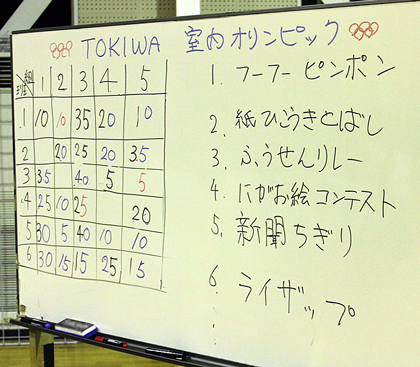 TOKIWA 室内オリンピック
組 1 2 3 4 5
1 10 10 35 20 10
2 20 25 20 35
3 35 40 5 5
4 25 10 25 20
5 30 5 40 10 10
6 30 15 15 25 15
1. フーフーピンポン
2. 紙ひこうきとばし
3. ふうせんリレー
4. にがお絵コンテスト
5. 新聞ちぎり
6. ライザップ